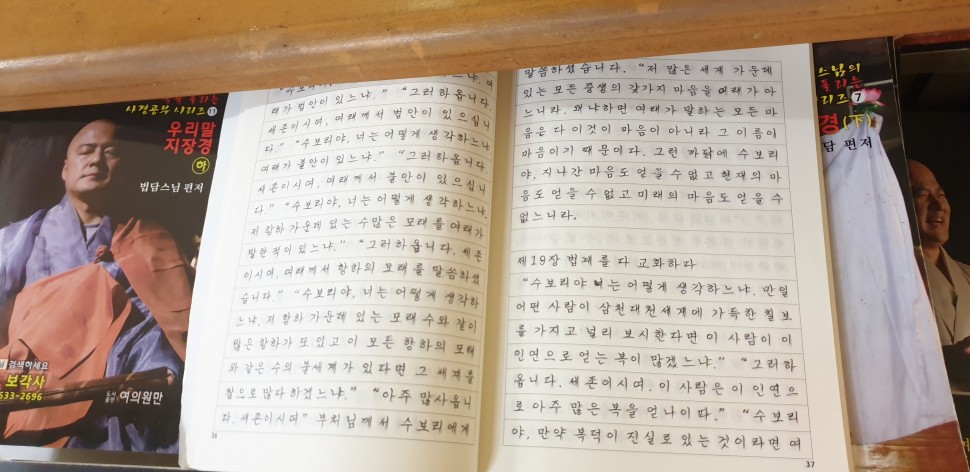 사경공부 시리즈 11
우리말
지장경
下
범담스님 편저
검색하세요
보각사
633-2696
여의원만
래가 법안이 있느냐." "그러하옵니다.
세존이시여, 여래께서 법안이 있으십니
다." "수보리야, 너는 어떻게 생각하느냐
여래가 불안이 있느냐." "그러하옵니다.
세존이시여, 여래께서 불안이 있으십니
다." "수보리야, 너는 어떻게 생각하느냐.
저 항하 가운데 있는 수많은 모래를 여래가
말한적이 있느냐." "그러하옵니다. 세존
이시여, 여래께서 항하의 모래를 말씀하셨
습니다." "수보리야, 너는 어떻게 생각하
느냐. 저 항하 가운데 있는 모래 수와 같이
많은 항하가 또 있고 이 모든 항하의 모래
와 같은 수의 불세계가 있다면 그 세계를
참으로 많다 하겠느냐." "아주 많사옵니
다. 세존이시여" 부처님께서 수보리에게
36
말씀하셨습니다. "저 많은 세계 가운데
있는 모든 중생의 갖가지 마음을 여래가 아
느니라. 왜냐하면 여래가 말하는 모든 마
음은 다 이것이 마음이 아니라 그 이름이
마음이기 때문이다. 그런 까닭에 수보리
야, 지나간 마음도 얻을 수 없고 현재의 마
음도 얻을 수 없고 미래의 마음도 얻을 수
없느니라.
제19장 법계를 다 교화하다
"수보리야 너는 어떻게 생각하느냐. 만일
어떤 사람이 삼천대천세계에 가득한 칠보
를 가지고 널리 보시한다면 이 사람이 이
인연으로 얻는 복이 많겠느냐." "그러하
옵니다. 세존이시여. 이 사람은 이 인연으
로 아주 많은 복을 얻나이다." "수보리
야, 만약 복덕이 진실로 있는 것이라면 여
37
스님의
리즈 7
경(下)
담 편저